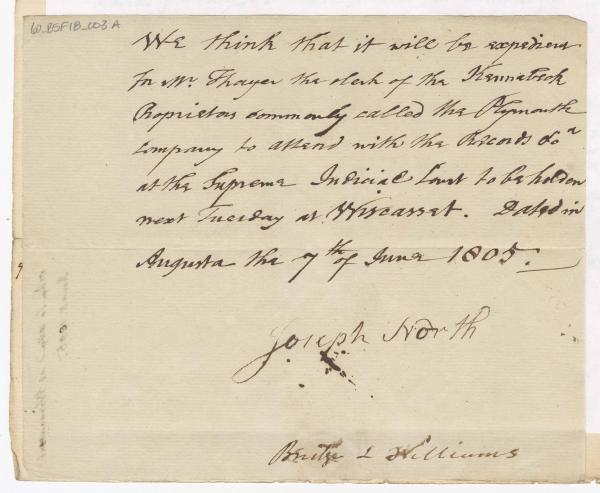 60_BSF18_003A
We think that it will be expedient
for Mr. Thayer the clerk of the Kennebeck
Proprietors commonly called the Plymouth
company to attend with the Records &ca
at the Supreme Judicial Court to be holden
next Tuesday at Wiscasset. Dated in
Augusta the 7th of June 1805.
Joseph North
Bridge & Williams